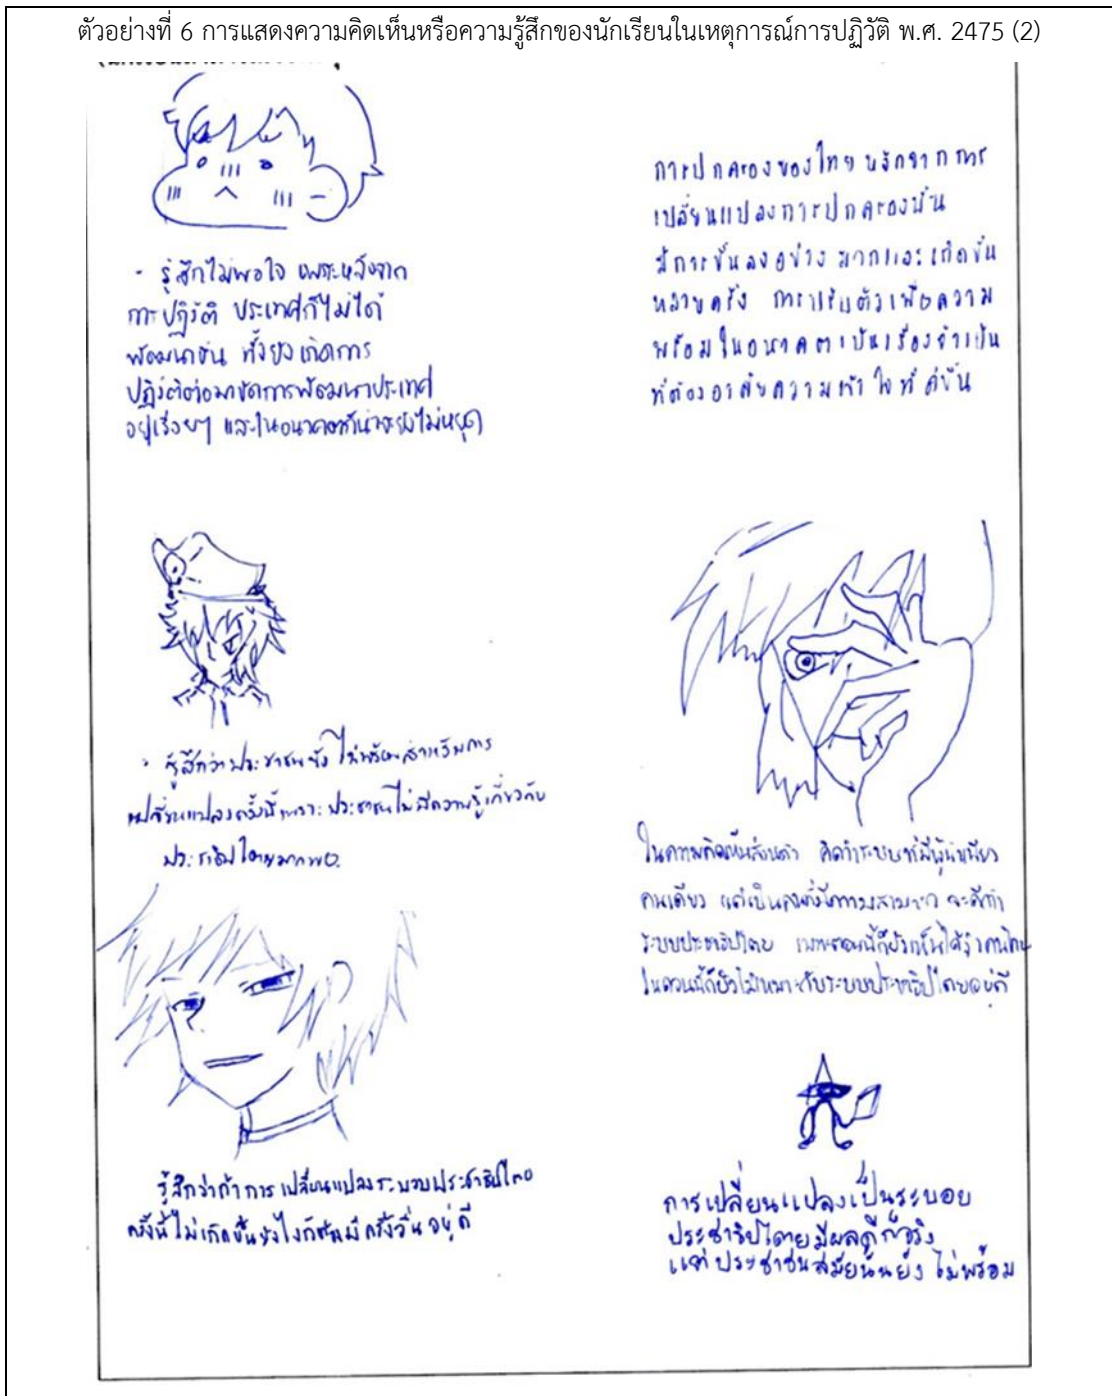 ตัวอย่างที่ 6 การแสดงความคิดเห็นหรือความรู้สึกของนักเรียนในเหตุการณ์การปฏิวัติ พ.ศ. 2475 (2)
- รู้สึกไม่พอใจ เพราะหลังจาก
การปฏิวัติ ประเทศก็ไม่ได้
พัฒนาขึ้น ทั้งยังเกิดการ
ปฏิวัติต่อมาขัดการพัฒนาประเทศ
อยู่เรื่อยๆ และในอนาคตก็น่าจะยังไม่หยุด
- รู้สึกว่าประชาชนยังไม่พร้อมสำหรับการ
เปลี่ยนแปลงครั้งนี้เพราะประชาชนไม่มีความรู้เกี่ยวกับ
ประชาธิปไตยมากพอ.
รู้สึกว่าถ้าการเปลี่ยนแปลงระบอบประชาธิปไตย
ครั้งนี้ไม่เกิดขึ้นยังไงก็ต้องมีครั้งอื่นอยู่ดี
การปกครองของไทยหลังจากการ
เปลี่ยนแปลงการปกครองนั้น
มีการขึ้นลงอย่างมากและเกิดขึ้น
หลายครั้ง การปรับตัวเพื่อความ
พร้อมในอนาคตเป็นเรื่องจำเป็น
ที่ต้องอาศัยความเข้าใจที่ดีขึ้น
ในความคิดเห็นส่วนตัว คิดว่าระบบที่มีผู้นำเพียง
คนเดียว แต่เป็นคนที่มีความสามารถ จะดีกว่า
ระบบประชาธิปไตย เพราะตอนนี้ก็ยังเห็นได้ว่าคนไทย
ในตอนนี้ก็ยังไม่เหมาะกับระบบประชาธิปไตยอยู่ดี
การเปลี่ยนแปลงเป็นระบอบ
ประชาธิปไตยมีผลดีก็จริง
แต่ประชาชนสมัยนั้นยังไม่พร้อม